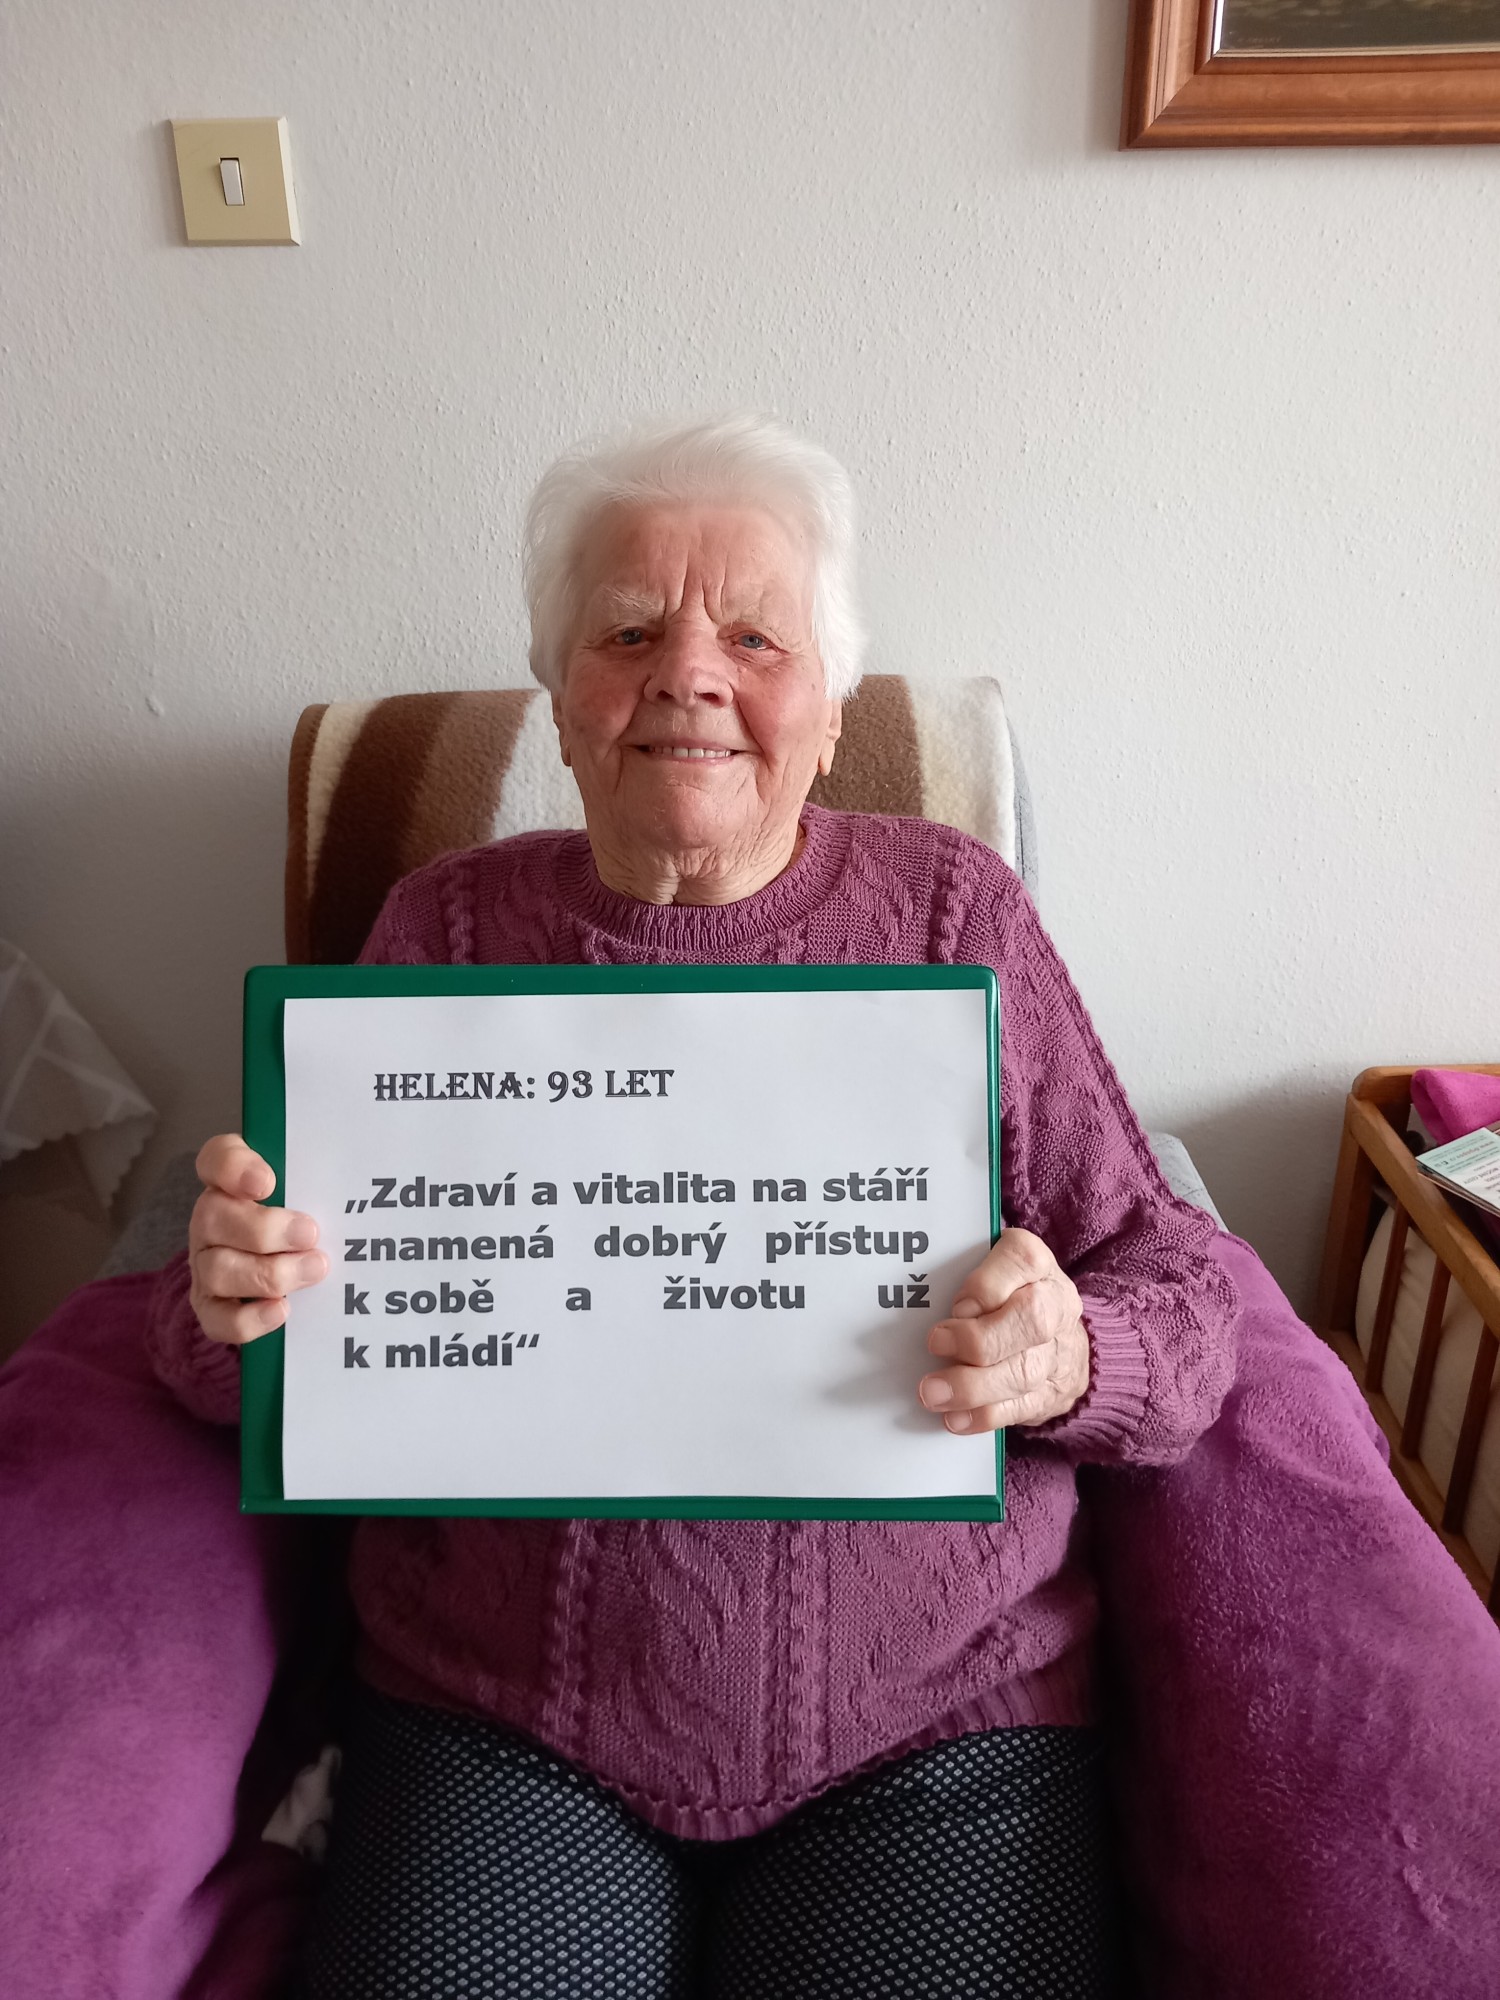 HELENA: 93 LET
,,Zdraví a vitalita na stáří
znamená dobrý přístup
k sobě a životu už
k mládí“